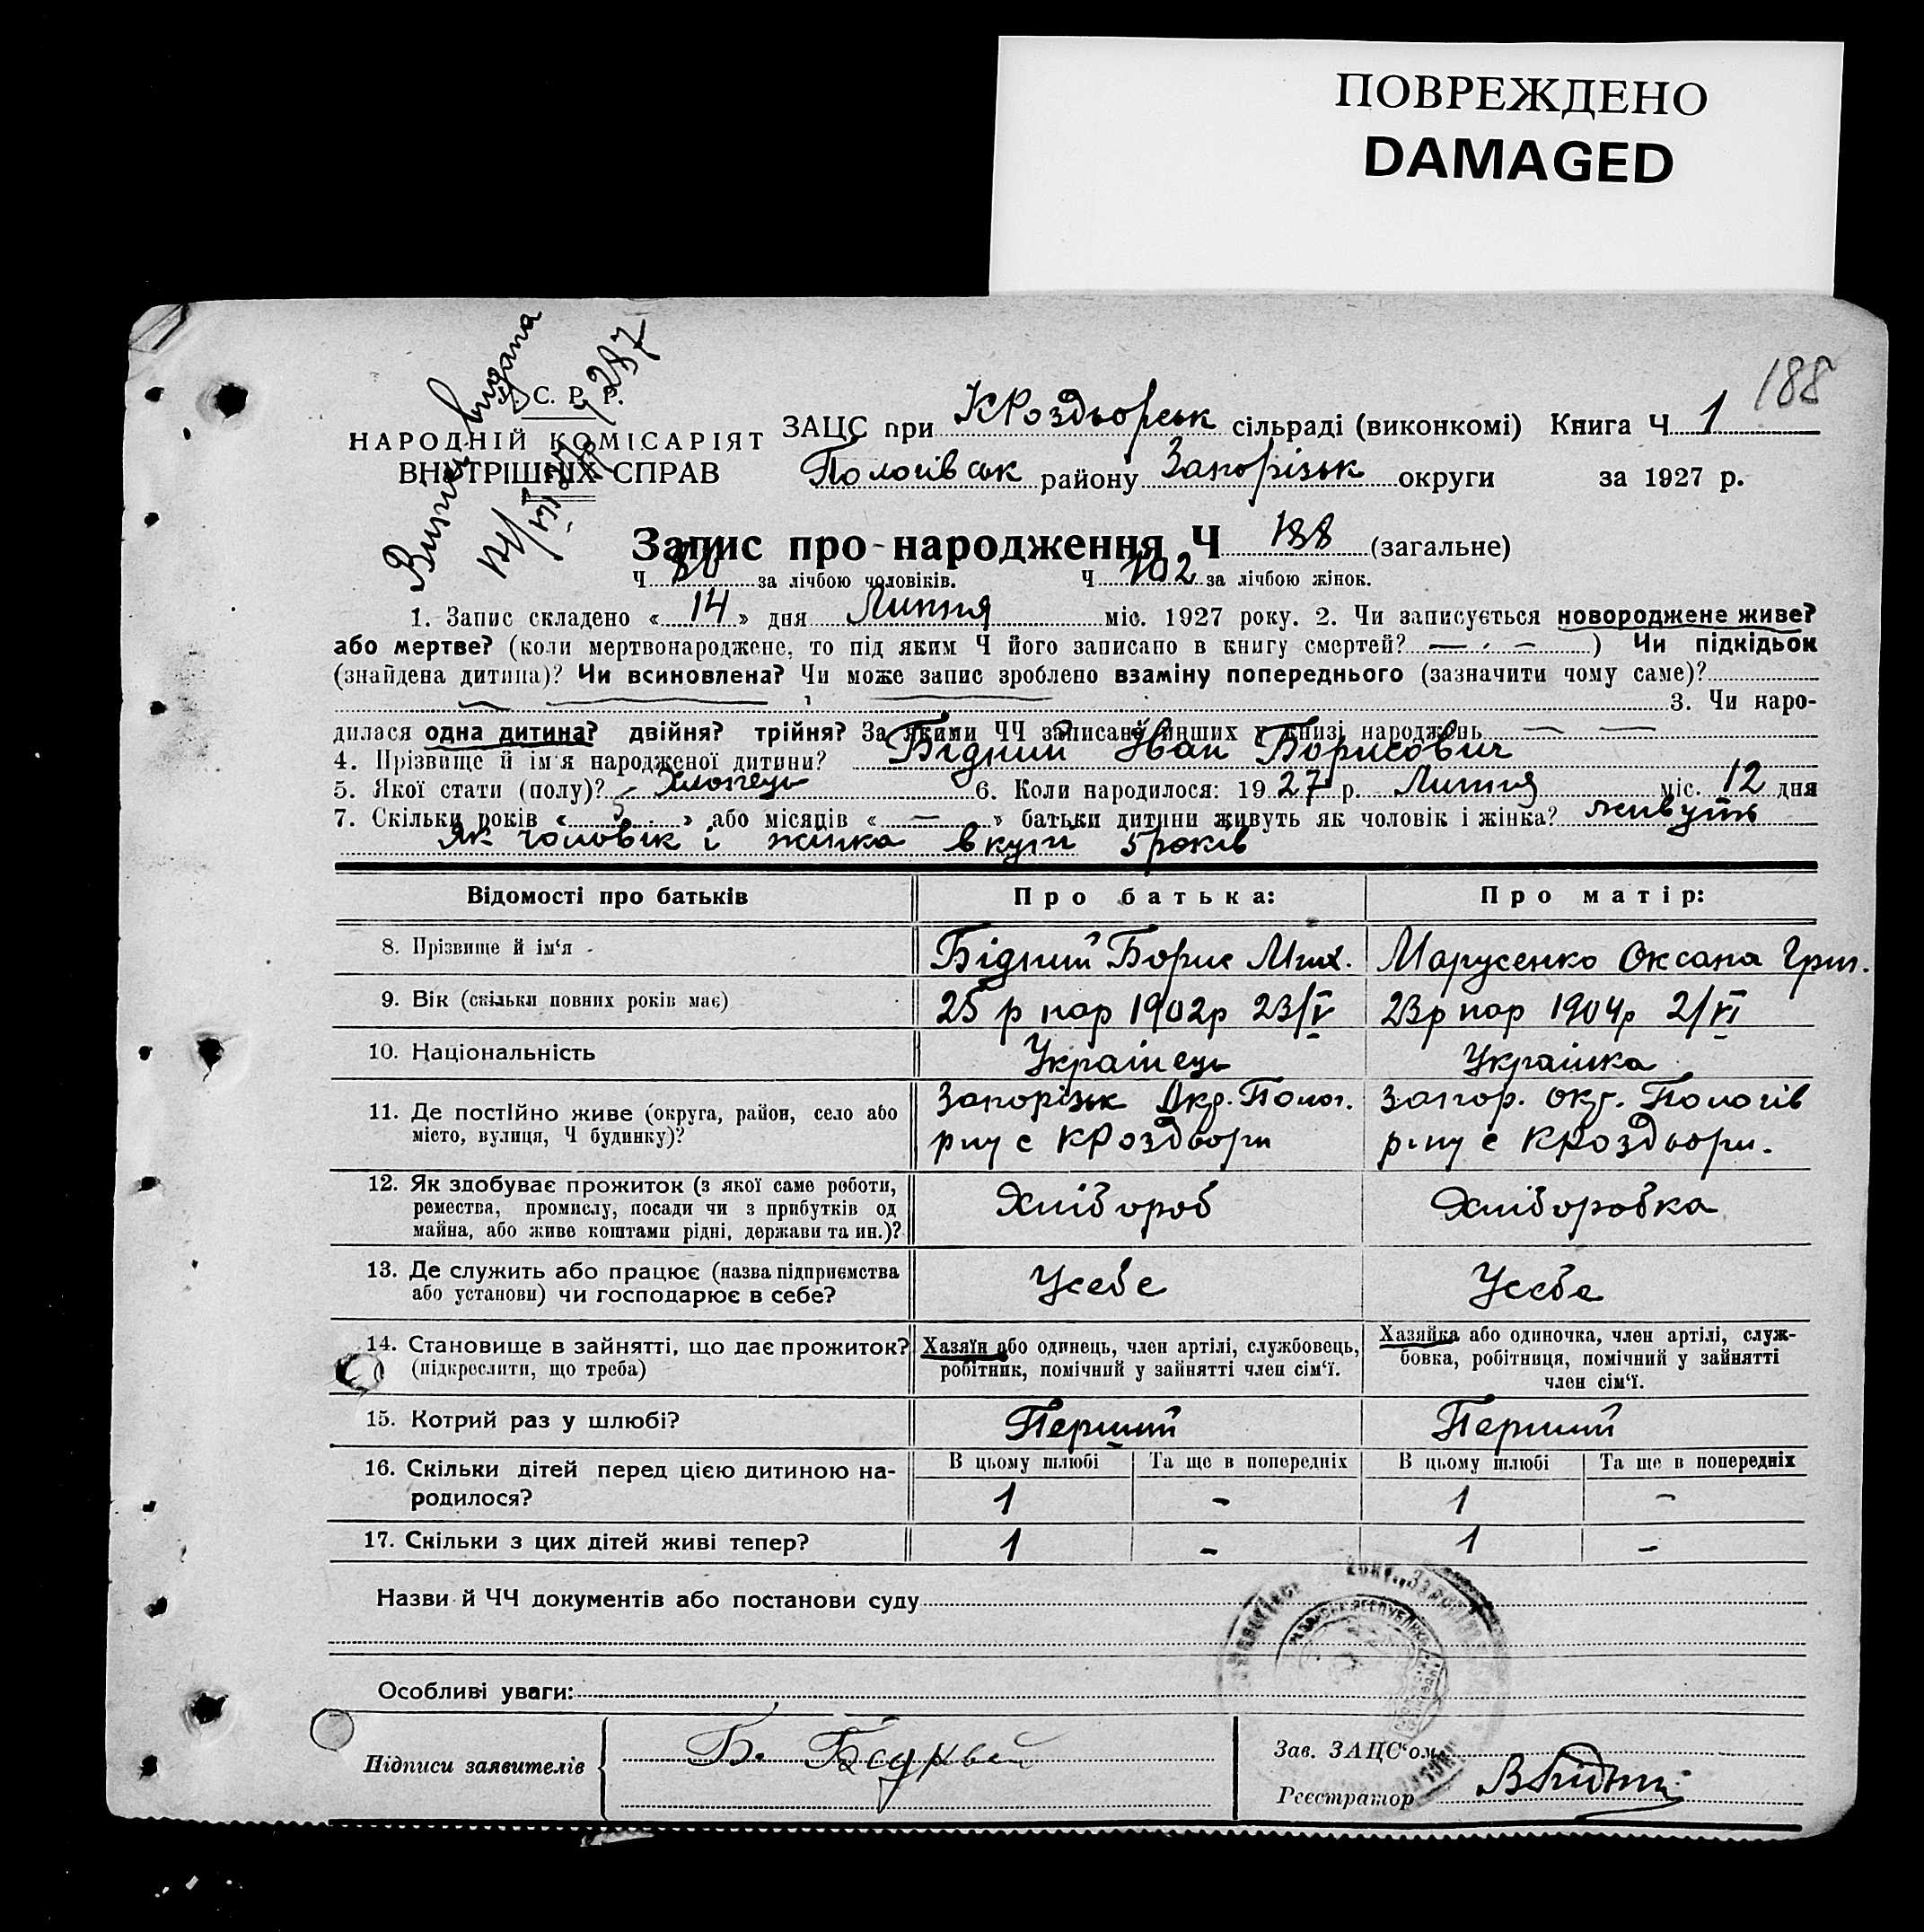 ПОВРЕЖДЕНО
DAMAGED
188
Виписку видана
С. Р. Р.
НАРОДНІЙ КОМІСАРІЯТ
ВНУТРІШНІХ СПРАВ
ЗАЦС при КРоздьорськ сільраді (виконкомі) Книга Ч 1
Пологівськ району Запорізьк округи за 1927 р.
Запис про народження Ч 188 (загальне)
Ч 86 за лічбою чоловіків. Ч 102 за лічбою жінок.
1. Запис складено « 14 » дня Липня міс. 1927 року. 2. Чи записується новороджене живе?
або мертве? (коли мертвонароджене, то під яким Ч його записано в книгу смертей? — · — ) Чи підкідьок
(знайдена дитина)? Чи всиновлена? Чи може запис зроблено взаміну попереднього (зазначити чому саме)?
3. Чи наро-
дилася одна дитина? двійня? трійня? За якими ЧЧ записано инших у книзі народжень — —
4. Прізвище й ім'я народженої дитини? Бідний Іван Борисович
5. Якої стати (полу)? Хлопець 6. Коли народилося: 1927 р. Липня міс. 12 дня
7. Скільки років « 5 » або місяців « — » батьки дитини живуть як чоловік і жінка? живуть
як чоловік і жінка вкупі 5 років
Відомості про батьків Про батька: Про матір:
8. Прізвище й ім'я Бідний Борис Мих. Марусенко Оксана Григ.
9. Вік (скільки повних років має) 25 р нар 1902р 23/V 23р нар 1904р 2/VI
10. Національність Українець Українка
11. Де постійно живе (округа, район, село або місто, вулиця, Ч будинку)? Запорізьк Окр. Полог. Запор. окр. Пологів
рну с КРоздвори р-ну с КРоздьори.
12. Як здобуває прожиток (з якої саме роботи,
ремества, промислу, посади чи з прибутків од
майна, або живе коштами рідні, держави та ин.)? Хлібороб Хліборобка
13. Де служить або працює (назва підприємства
або установи) чи господарює в себе? Усебе Усебе
14. Становище в зайнятті, що дає прожиток?
(підкреслити, що треба)
Хазяїн або одинець, член артілі, службовець,
робітник, помічний у зайнятті член сім'ї.
Хазяйка або одиночка, член артілі, служ-
бовка, робітниця, помічний у зайнятті
член сім'ї.
15. Котрий раз у шлюбі? Перший Перший
16. Скільки дітей перед цією дитиною на-
родилося?
В цьому шлюбі Та ще в попередніх В цьому шлюбі Та ще в попередніх
1 - 1 -
17. Скільки з цих дітей живі тепер? 1 - 1 -
Назви й ЧЧ документів або постанови суду
Особливі уваги:
Підписи заявителів Б. Бедный
Зав. ЗАЦС'ом
Реєстратор